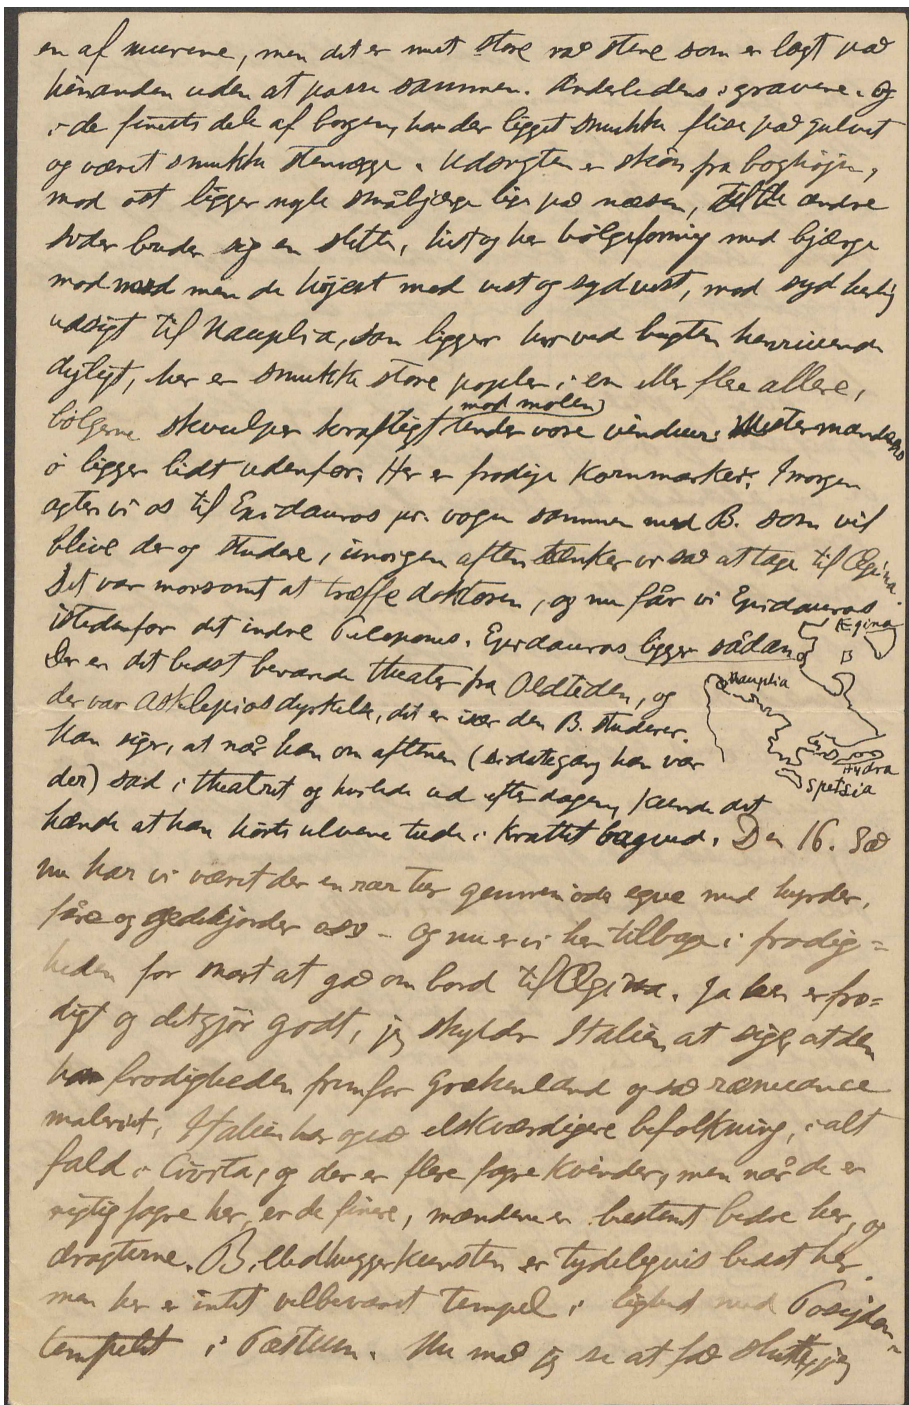 en af murene, men det er mest store rå stene som er lagt på
hinanden uden at passe sammen. Anderledens i gravene. Og
i de fineste dele af borgen, har der ligget smukke fliser på gulvet
og været smukke stenvægge. Udsigten er skøn fra borghøjen,
mod øst ligger nogle småbjærge lige på næsen, til de andre
sider breder sig en slette, hist og her bølgeformig med bjærge
mod nord men de højest mod vest og sydvest, mod syd herlig
udsigt til Nauplia, som ligger her ved bugten henrivende
dejligt, her er smukke store popler i en eller flere alleer,
bølgerne skvulper kraftigt mod molen under vore vinduer.
ø ligger lidt udenfor. Her er frodige Kornmarker. Imorgen
agter vi os til Epidauros pr. vogn sammen med B. som vil
blive der og studere, imorgen aften tænker vi så at tage til Ægina.
Det var morsomt at træffe doktoren, og nu får vi Epidauros
istedenfor det indre Peleponnes. Epidauros ligger sådan
Ægina
Der er det bedst bevarede theater fra Oldtiden, og
Nauplia
der var Asklepiosdyrkelse, det er især den B. studerer.
Han siger, at når han om aftenen (sidstegang han var
Hydra
der) sad i theatret og hvilede ud efter dagen, kunde det
Spetsia
hænde at han hørte ulvene tude i Krattet bagved. Den 16. Så
nu har vi været der en rar tur gennem øde egne med hyrder,
fåre og gedehjorder osv – og nu er vi her tilbage i frodig=
heden for snart at gå om bord til Ægina. Ja her er fro=
digt og det gjør godt, jeg skylder Italien at sige, at den
har frodigheden fremfor Grækenland og så rænæssance
maleriet, Italien har også elskværdigere befolkning, i alt
fald i Civita, og der er flere fagre Kvinder, men når de er
rigtig fagre her, er de finere, mændene er bestemt bedre her, og
dragterne. Billedhuggerkunsten er tydeligvis bedst her
men her er intet velbevaret tempel i lighed med Poseidon=
templet i Pæstum. Nu må jeg se at få sluttet, jeg